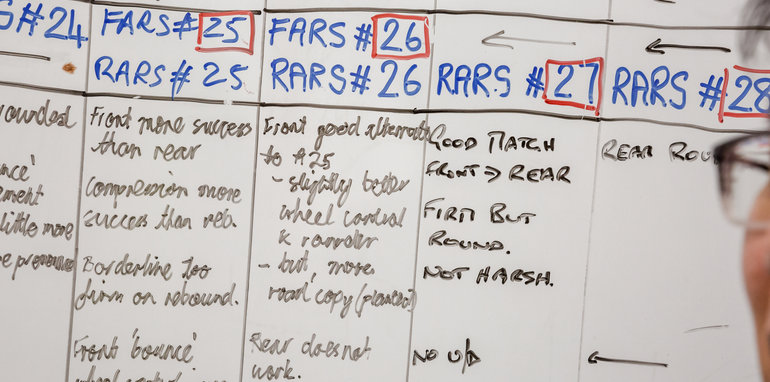 S#24
ounded
ance'
ement
little more
e pronounced
FARS# 25
RARS# 25
Front more success
than rear
Compression more
success than reb.
Borderline too
firm on rebound.
Front 'bounce'
FARS# 26
RARS# 26
Front good alternati
to #25
- slightly better
wheel control
& rounder
- but, more
road copy (planted)
Rear does not
work.
RARS #27
GOOD MATCH
FRONT → REAR
FIRM BUT
ROUND.
NOT HARSH.
NO U/D
RARS #28
REAR ROU